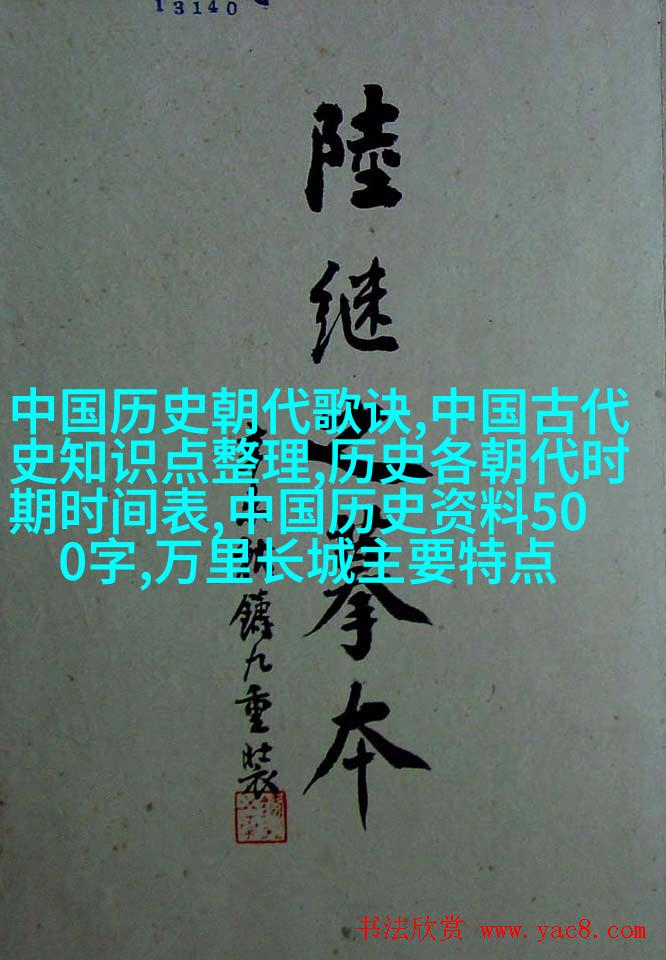 13140
陸继之摹本
鑄九重裝
中国历史朝代歌诀,中国古代
史知识点整理,历史各朝代时
期时间表,中国历史资料50
0字,万里长城主要特点
书法欣赏 www.yac8.com